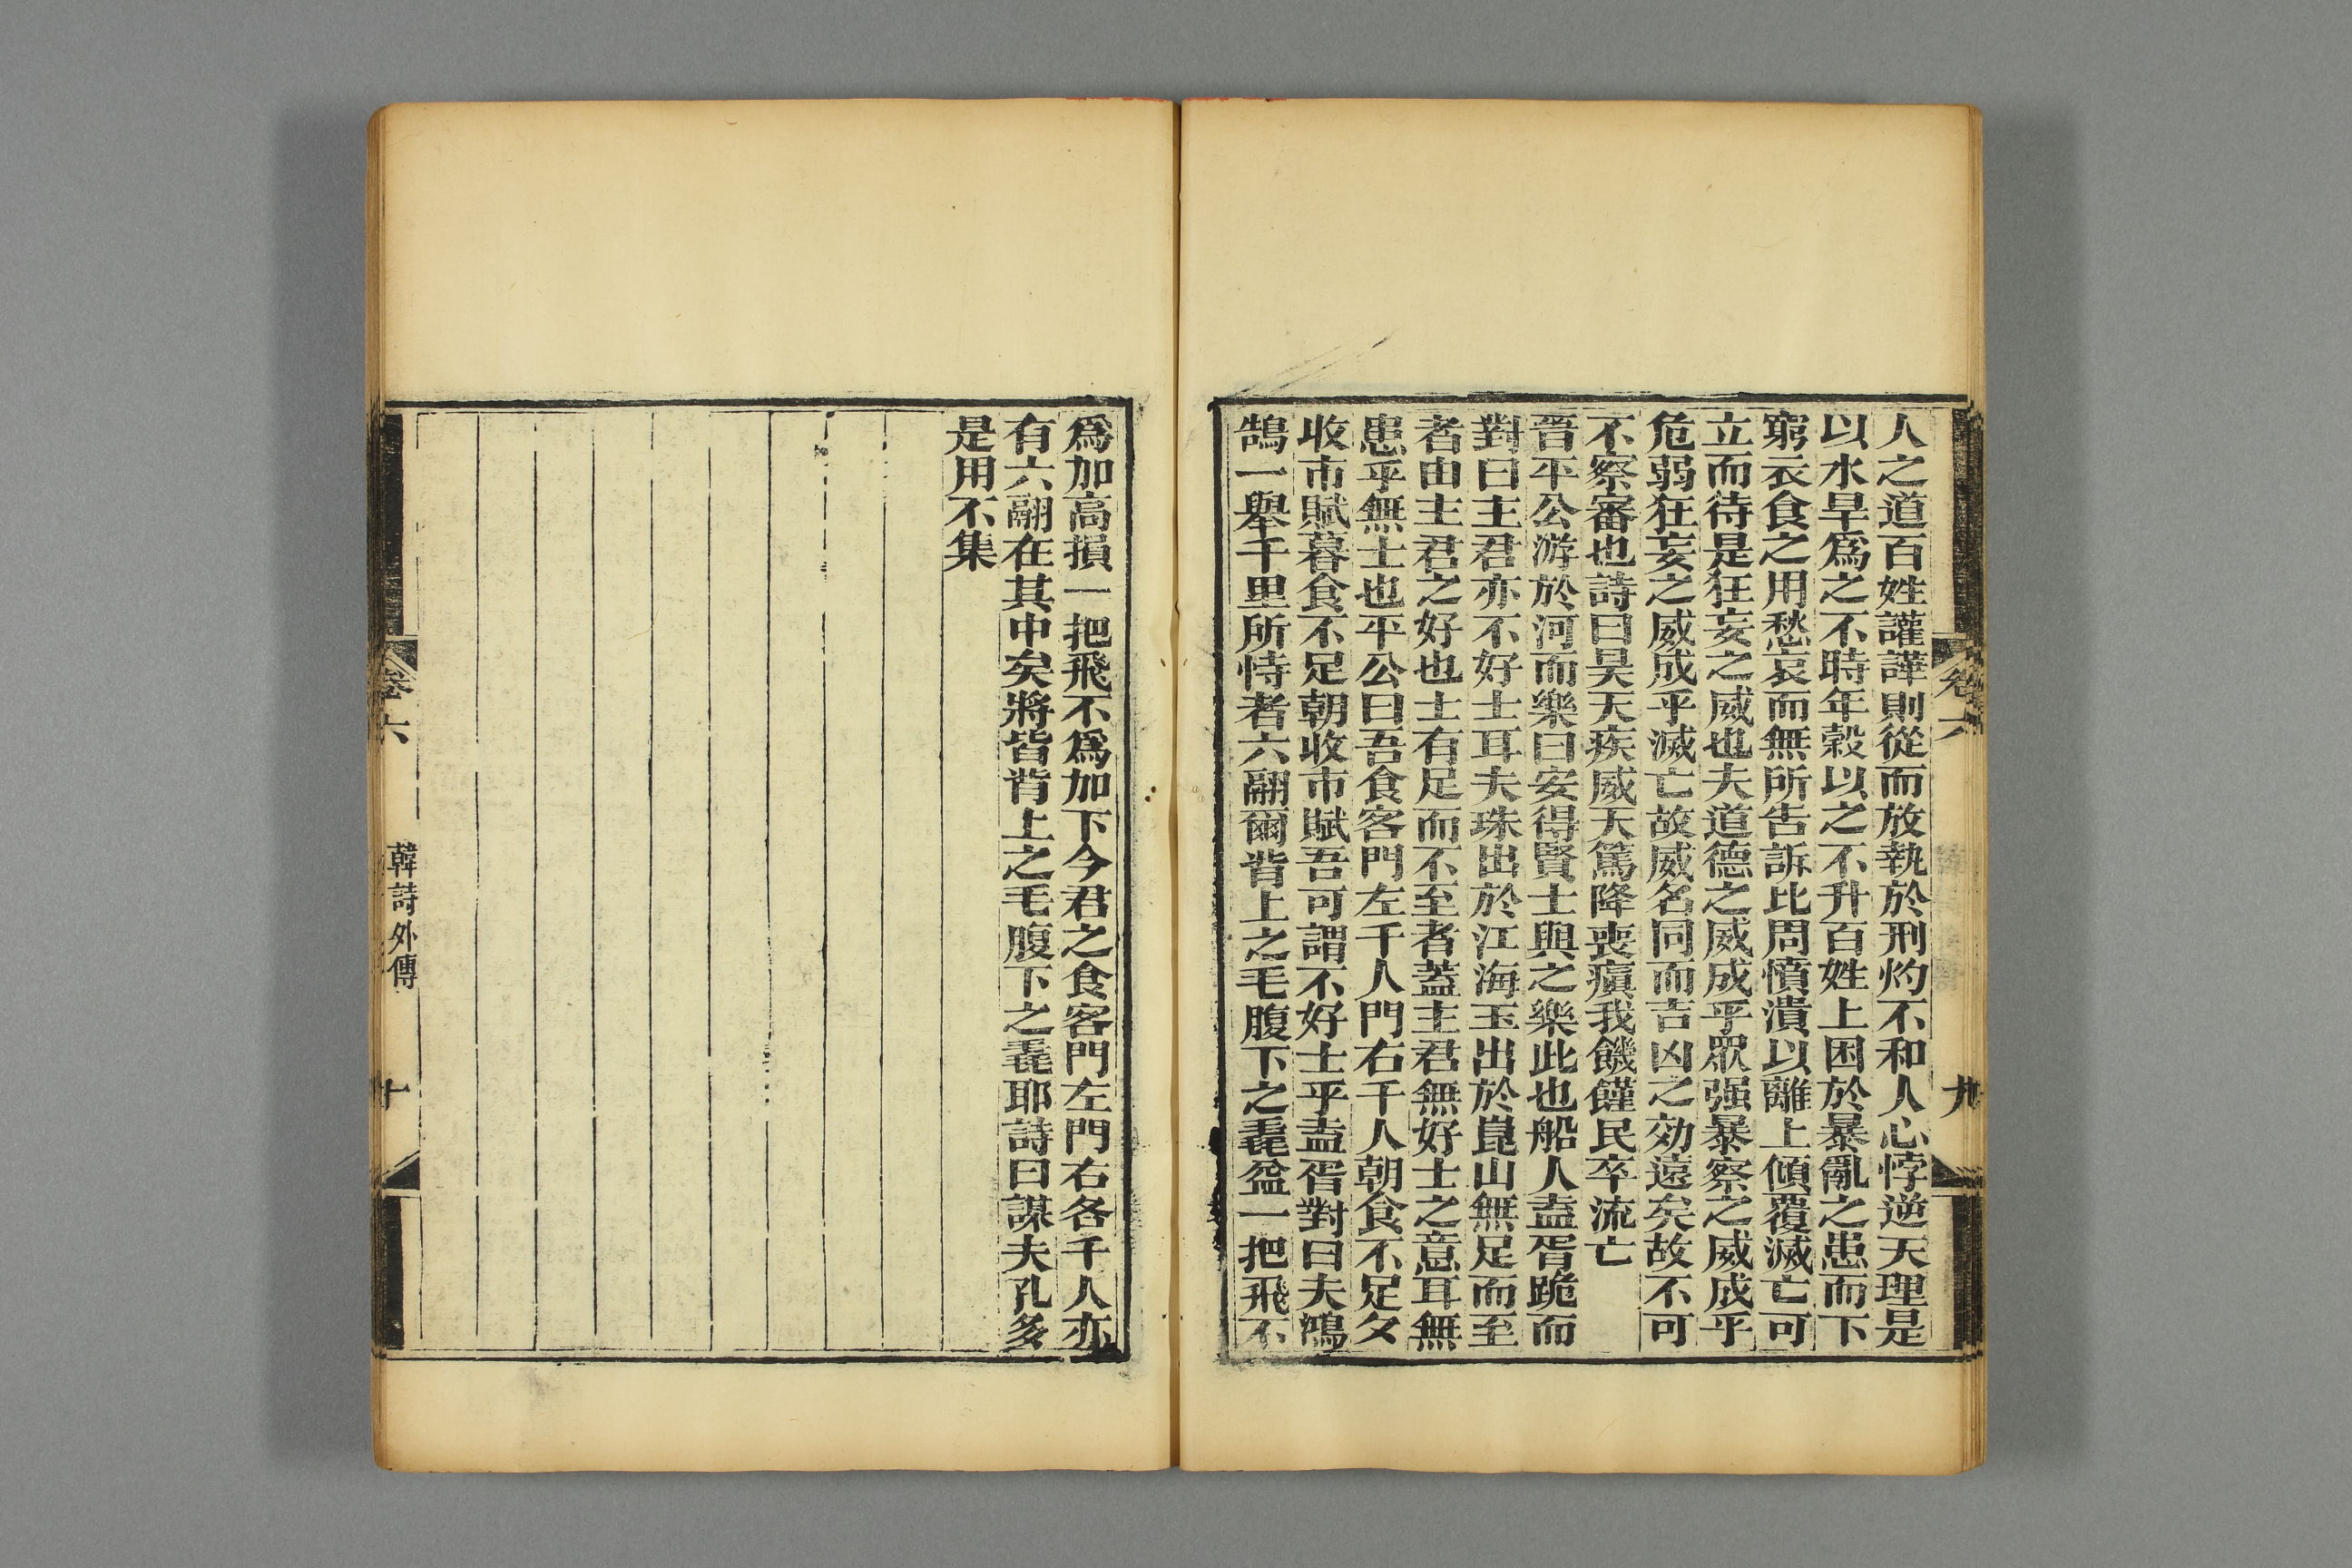 人之道百姓讙譁則從而放執於刑灼不和人心悖逆天理是
以水旱爲之不時年穀以之不升百姓上困於暴亂之患而下
窮衣食之用愁哀而無所告訴比周憤潰以離上傾覆滅亡可
立而待是狂妄之威也夫道德之威成乎眾强暴察之威成乎
危弱狂妄之威成乎滅亡故威名同而吉凶之効遠矣故不可
不察審也詩曰昊天疾威天篤降喪瘨我饑饉民卒流亡
晉平公游於河而樂曰安得賢士與之樂此也船人盍胥跪而
對曰主君亦不好士耳夫珠出於江海玉出於崑山無足而至
者由主君之好也士有足而不至者蓋主君無好士之意耳無
患乎無士也平公曰吾食客門左千人門右千人朝食不足夕
收市賦暮食不足朝收市賦吾可謂不好士乎盍胥對曰夫鴻
鵠一舉千里所恃者六翮爾背上之毛腹下之毳益一把飛不
卷六
九
爲加高損一把飛不爲加下今君之食客門左門右各千人亦
有六翮在其中矣將皆背上之毛腹下之毳耶詩曰謀夫孔多
是用不集
卷六
韓詩外傳
十